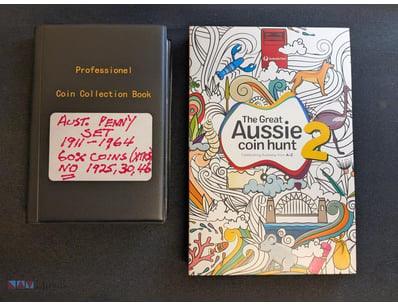 Professionel
Coin Collection Book
AUST. PENNY
SET
1911-1964
60X COINS
NO 1925, 30, 46
The Great
Aussie
coin hunt
2
Celebrating Australia from A-Z